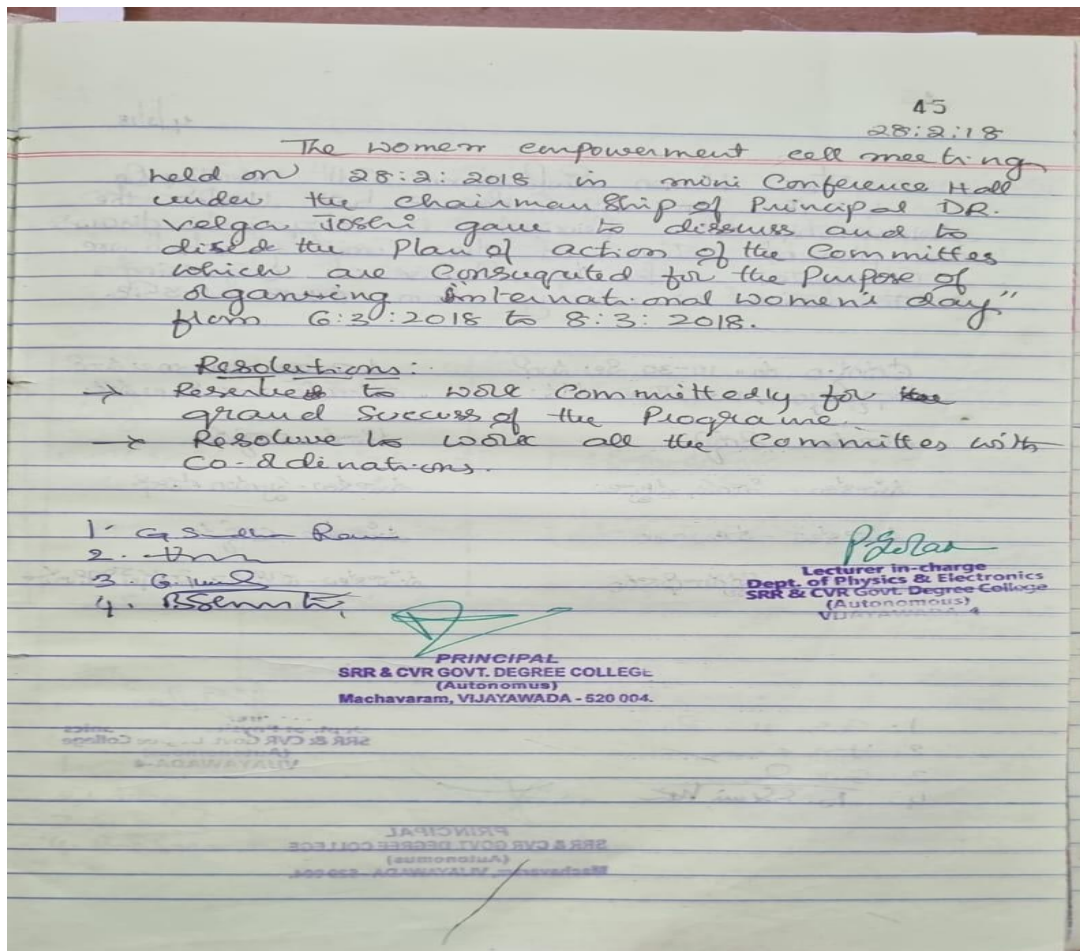 45
28:2:18
The women empowerment cell meeting
held on 28:2:2018 in mini Conference Hall
under the chairmanShip of Principal DR.
velga Joshi gave to disscuss and to
the Plan of action of the Committes
which are for the Purpose of
organising International women's day"
from 6:3:2018 to 8:3:2018.
Resolutions:
→ to work Committedly for
grand Success of the Programe.
→ Resoluve to work all the Committes with
Co-ordinations.
1. G
2.
3. G.
4.
Lecturer in-charge
Dept. of Physics & Electronics
SRR & CVR Govt. Degree College
(Autonomous)
VIJAYAWADA-4
PRINCIPAL
SRR & CVR GOVT. DEGREE COLLEGE
(Autonomus)
Machavaram, VIJAYAWADA - 520 004.